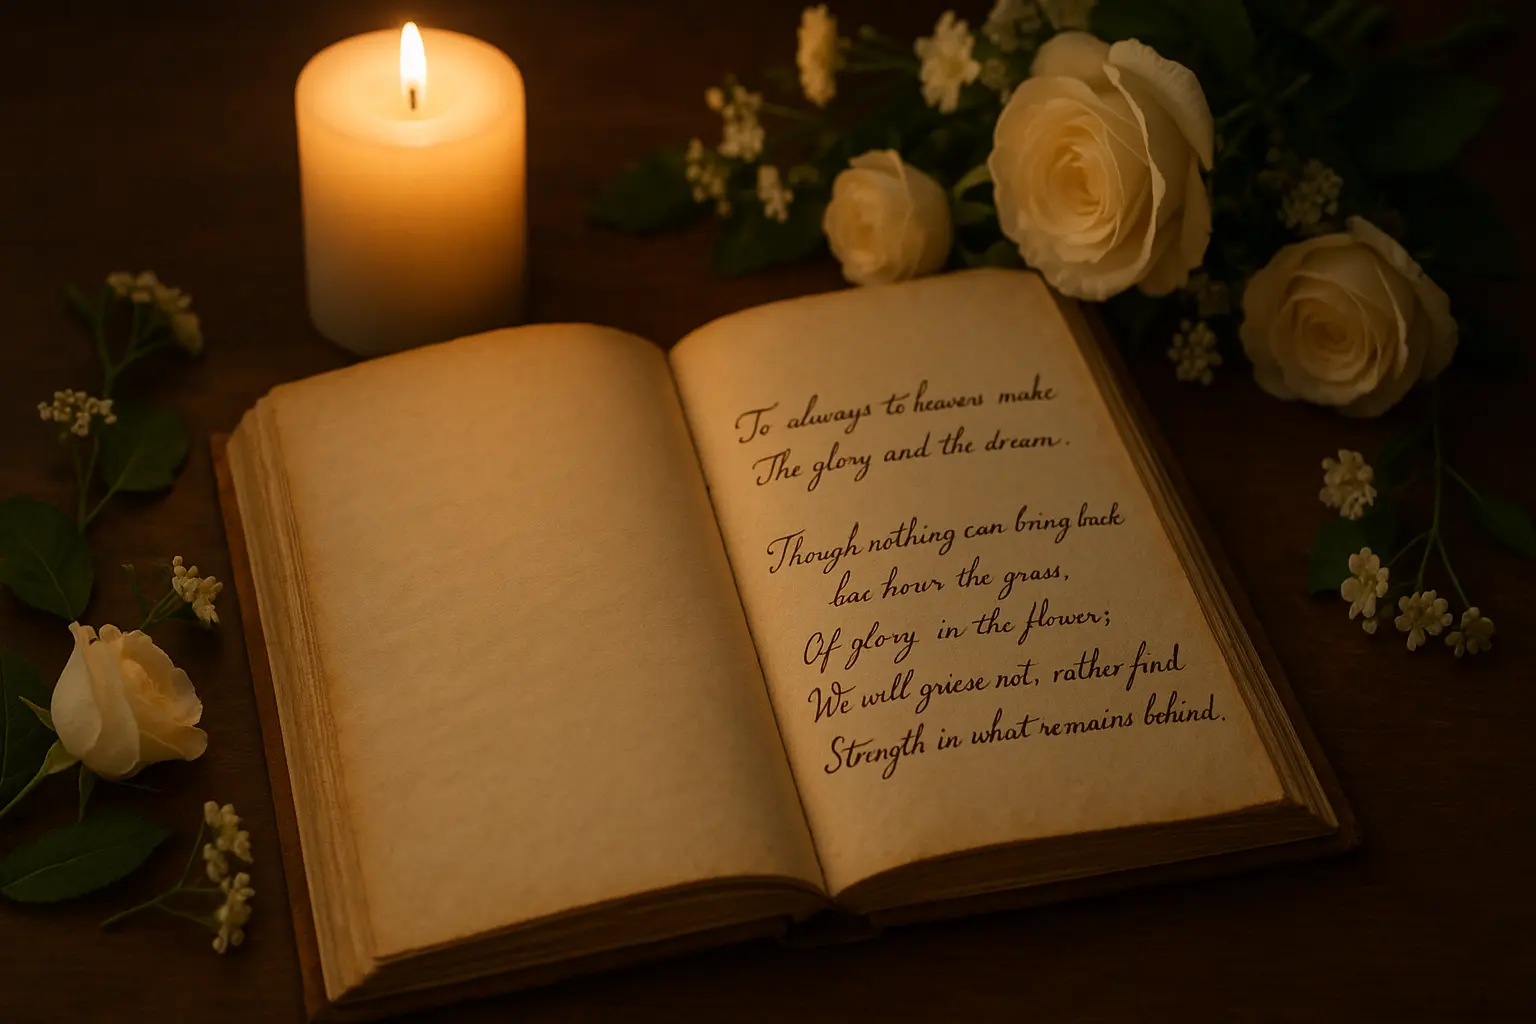 To always to heavens make
The glory and the dream.
Though nothing can bring back
bac hour the grass,
Of glory in the flower;
We will griese not, rather find
Strength in what remains behind.